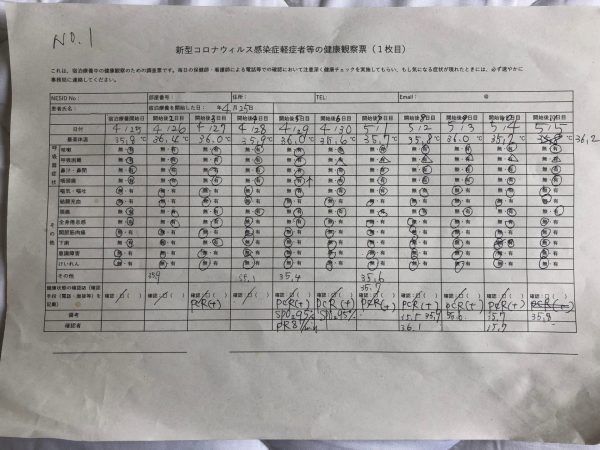 NO.1
新型コロナウィルス感染症軽症者等の健康観察票（1枚目）
これは、宿泊療養中の健康観察のための調査票です。毎日の保健師・看護師による電話等での確認において注意深く健康チェックを実施してもらい、もし気になる症状が現れたときには、必ず速やかに
事務局に連絡してください。
NESID No： 部屋番号： 住所： TEL： Email： @
患者氏名： 宿泊療養を開始した日： 年4月25日
宿泊療養開始日 開始後2日目 開始後3日目 開始後4日目 開始後5日目 開始後6日目 開始後7日目 開始後8日目 開始後9日目 開始後10日目 開始後11日目
日付 4/25 4/26 4/27 4/28 4/29 4/30 5/1 5/2 5/3 5/4 5/5
基本体温 35,8℃ 36,4℃ 36.0℃ 35,9℃ 36,0℃ 35,6℃ 35,7℃ 35,8℃ 36.0℃ 35,7℃ 36,2
呼吸器症状
咳嗽 無・有 無・有 無・有 無・有 無・有 無・有 無・有 無・有 無・有 無・有 無・有
呼吸困難 無・有 無・有 無・有 無・有 無・有 無・有 無・有 無・有 無・有 無・有 無・有
鼻汁・鼻閉 無・有 無・有 無・有 無・有 無・有 無・有 無・有 無・有 無・有 無・有 無・有
咽頭痛 無・有 無・有 無・有 無・有 無・有↑ 無・有 無・有 無・有 無・有 無・有 無・有
その他
嘔気・嘔吐 無・有 無・有 無・有 無・有 無・有 無・有 無・有 無・有 無・有 無・有 無・有
結膜充血 無・有 無・有 無・有 無・有 無・有 無・有 無・有 無・有 無・有 無・有 無・有
頭痛 無・有 無・有 無・有 無・有 無・有 無・有 無・有 無・有 無・有 無・有 無・有
全身倦怠感 無・有 無・有 無・有 無・有 無・有 無・有 無・有 無・有 無・有 無・有 無・有
関節筋肉痛 無・有 無・有 無・有 無・有 無・有 無・有 無・有 無・有 無・有 無・有 無・有
下痢 無・有 無・有 無・有 無・有 無・有 無・有 無・有 無・有 無・有 無・有 無・有
意識障害 無・有 無・有 無・有 無・有 無・有 無・有 無・有 無・有 無・有 無・有 無・有
けいれん 無・有 無・有 無・有 無・有 無・有 無・有 無・有 無・有 無・有 無・有 無・有
その他 35,4 35,6
35,7
健康状態の確認 確認 確認 確認 確認 確認 確認 確認 確認 確認 確認 確認
PCR(+) PCR(+) PCR(+) PCR(+) PCR(+) PCR(+) PCR(+) PCR(+)
備考 SPO2 95% SPO2 95% 35,9 35,7 35,8
確認者 PR 36.1